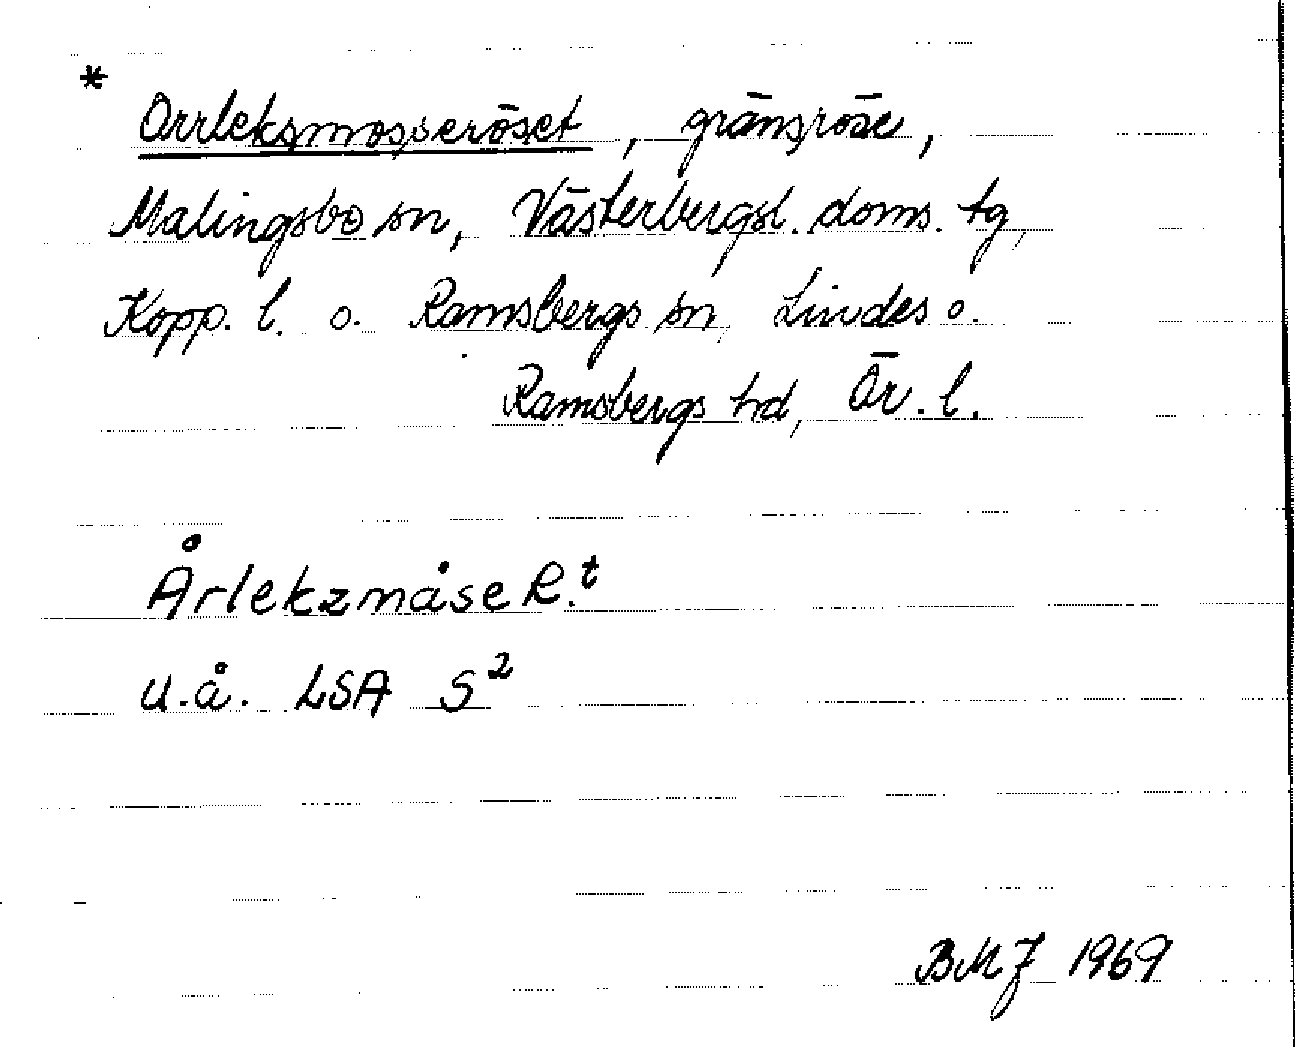 *
Orrleksmosseröset, gränsröse,
Malingsbo sn, Västerbergsl. doms. tg,
Kopp. l. o. Ramsbergs sn, Lindes o.
Ramsbergs hd, Ör. l.
Årlekzmåse R.t
u.å. LSA S2
BMJ 1969